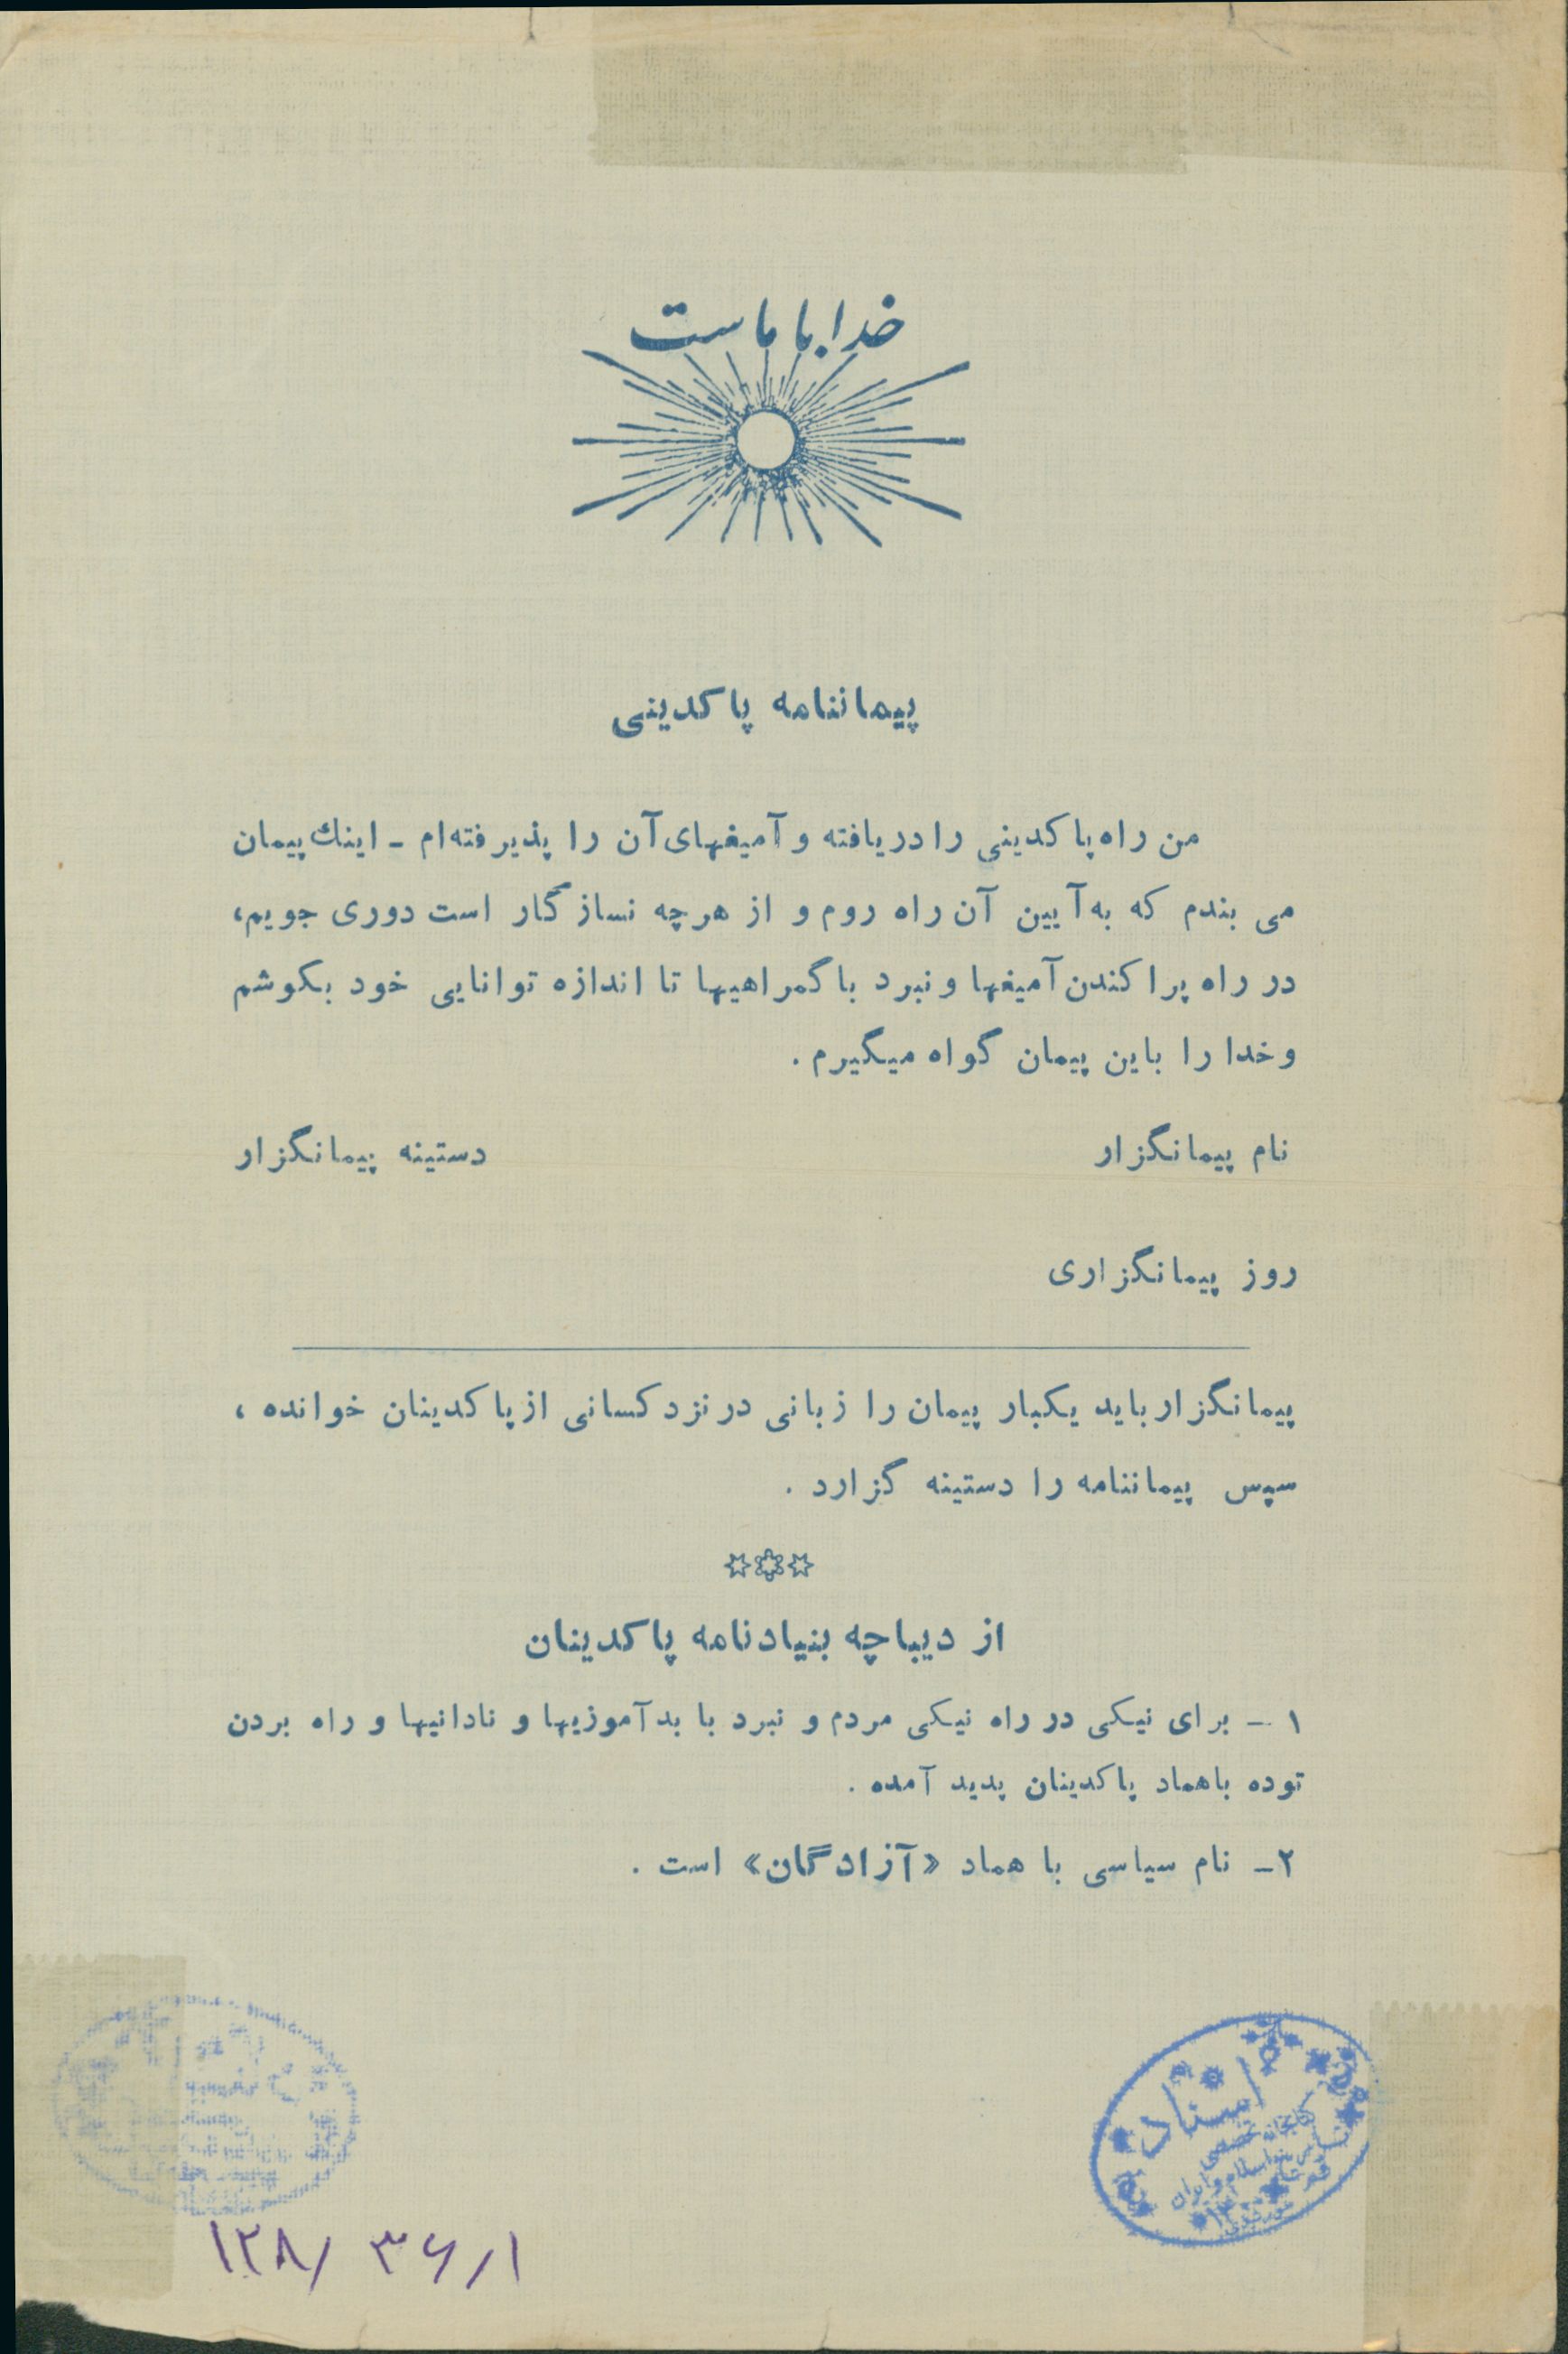 خدا با ماست
پیماننامه پاکدینی
من راه پاکدینی را دریافته و آمیغهای آن را پذیرفته‌ام ـ اینك پیمان
می بندم که به آیین آن راه روم و از هرچه نسازگار است دوری جویم،
در راه پراکندن آمیغها و نبرد با گمراهیها تا اندازه توانایی خود بکوشم
و خدا را باین پیمان گواه میگیرم .
نام پیمانگزار دستینه پیمانگزار
روز پیمانگزاری
پیمانگزار باید یکبار پیمان را زبانی در نزد کسانی از پاکدینان خوانده ،
سپس پیماننامه را دستینه گزارد .
از دیباچه بنیادنامه پاکدینان
۱ ـ برای نیکی در راه نیکی مردم و نبرد با بدآموزیها و نادانیها و راه بردن
توده باهماد پاکدینان پدید آمده .
۲ـ نام سیاسی با هماد «آزادگان» است .
اسناد
کتابخانه تخصصی
اسلام و ایران
قم
۱۲۸/ ۳۶/۱